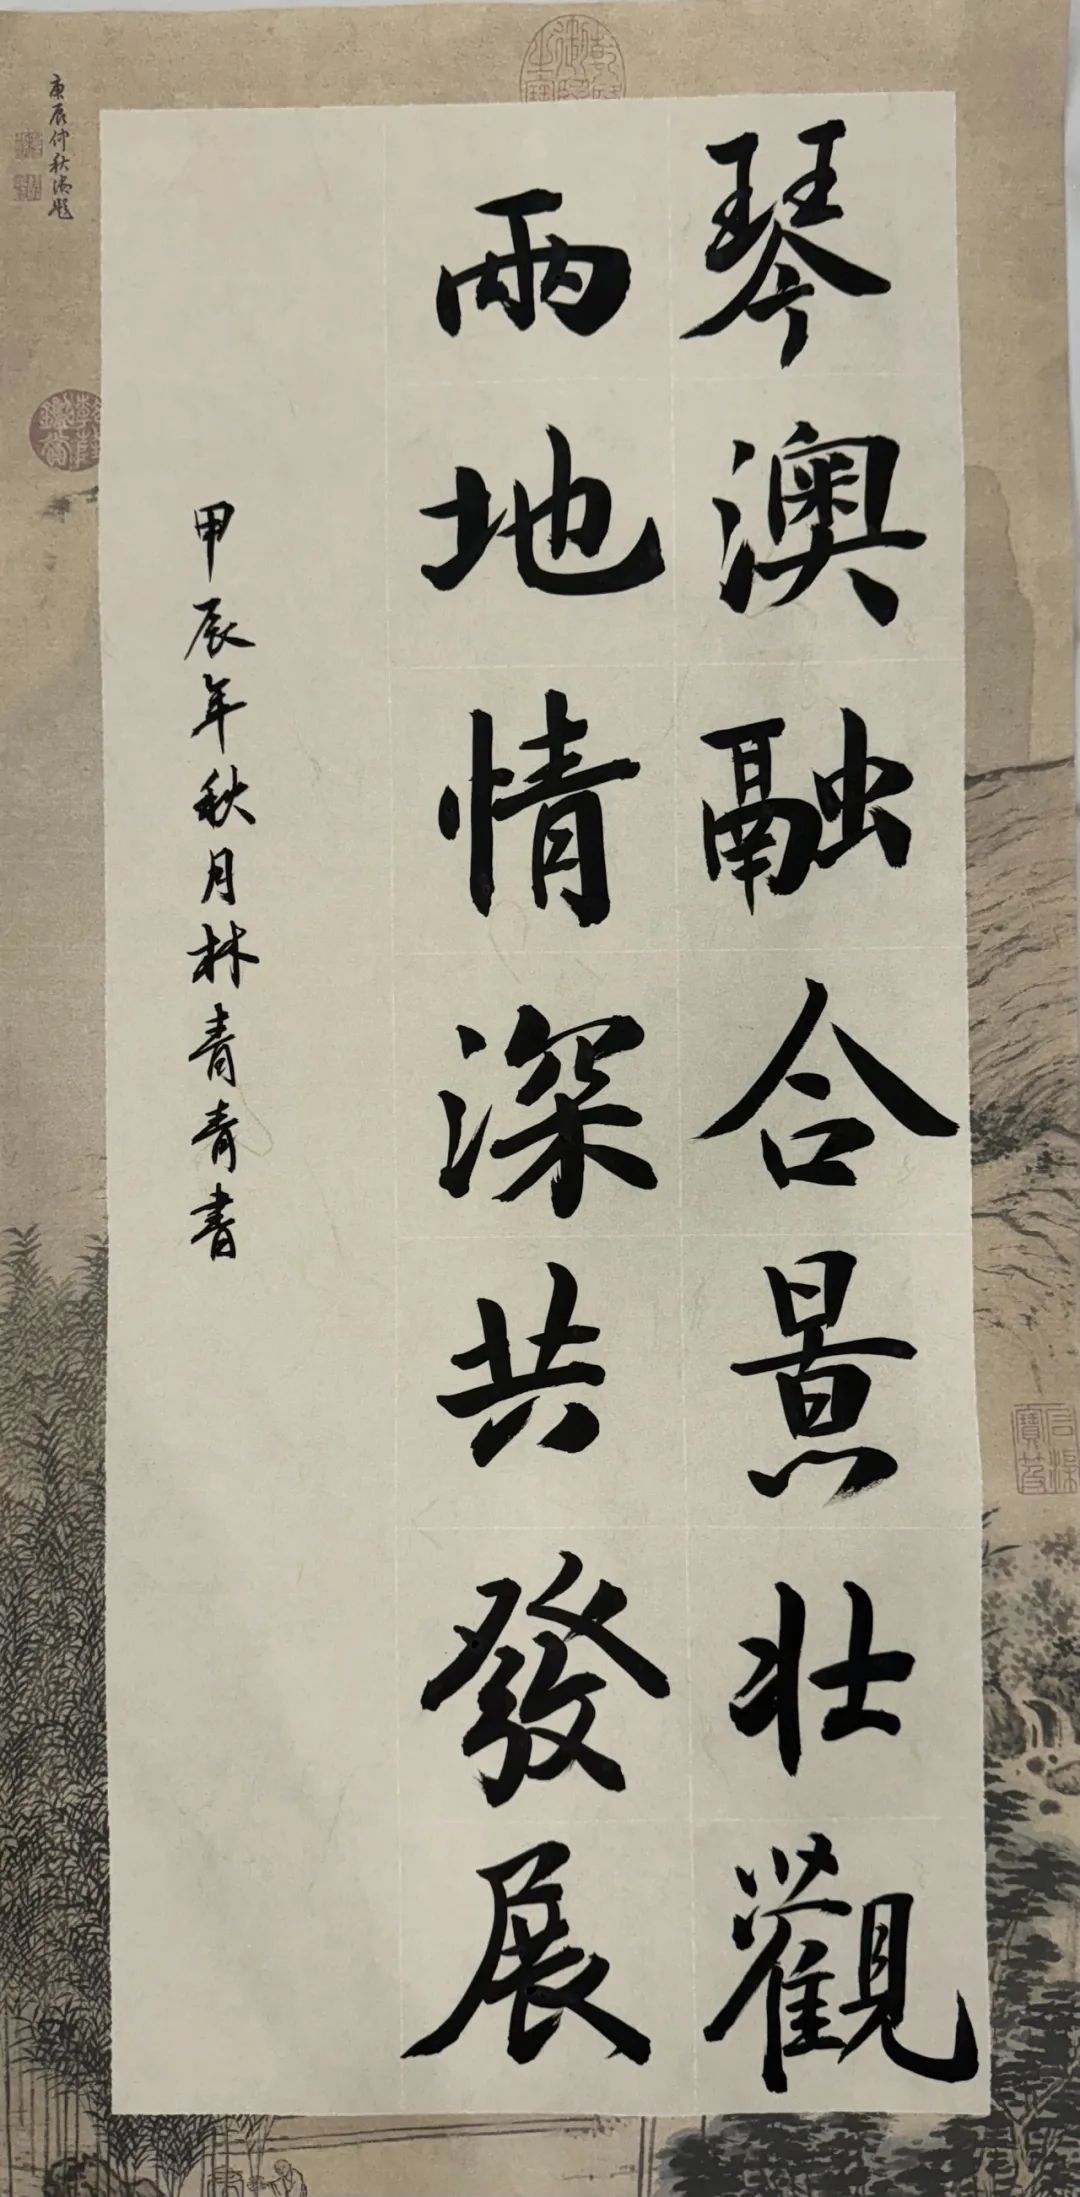 琴澳融合景壯觀
兩地情深共發展
甲辰年秋月林青青書
庚辰仲秋御題